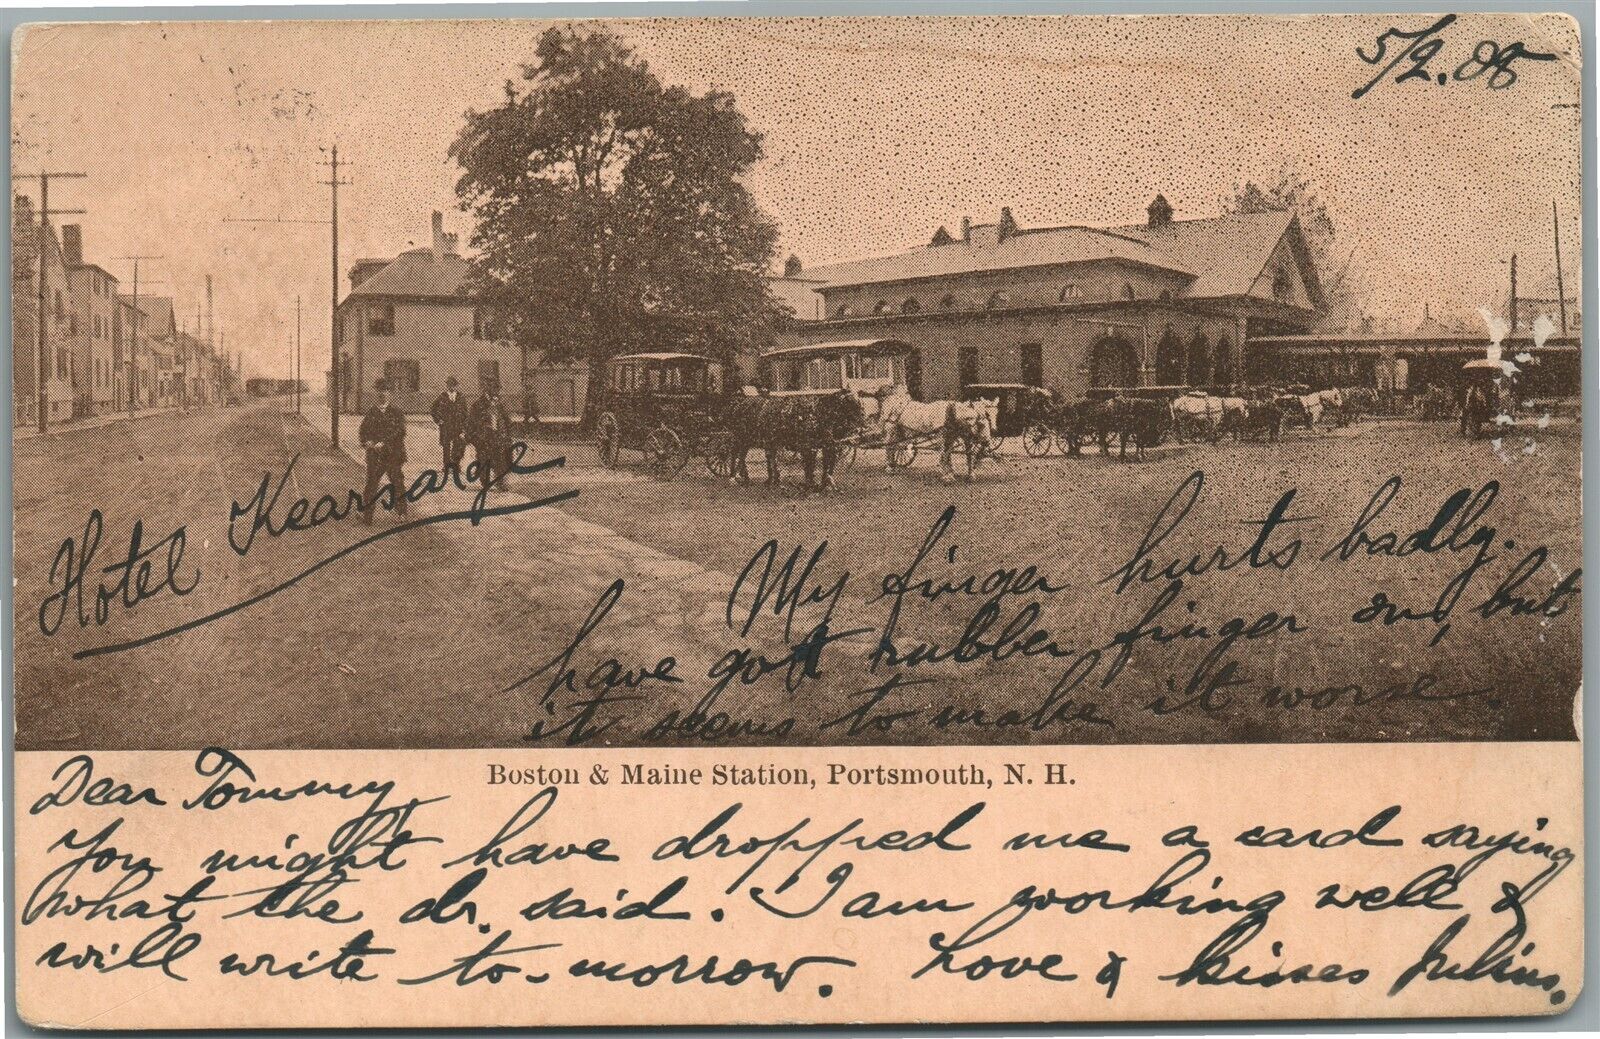 5/2.08
Hotel Kearsarge
My finger hurts badly.
have got rubber finger on, but
it seems to make it worse.
Boston & Maine Station, Portsmouth, N. H.
Dear Tommy,
You might have dropped me a card saying
what the dr. said. I am working well &
will write to-morrow. Love & kisses Julius.